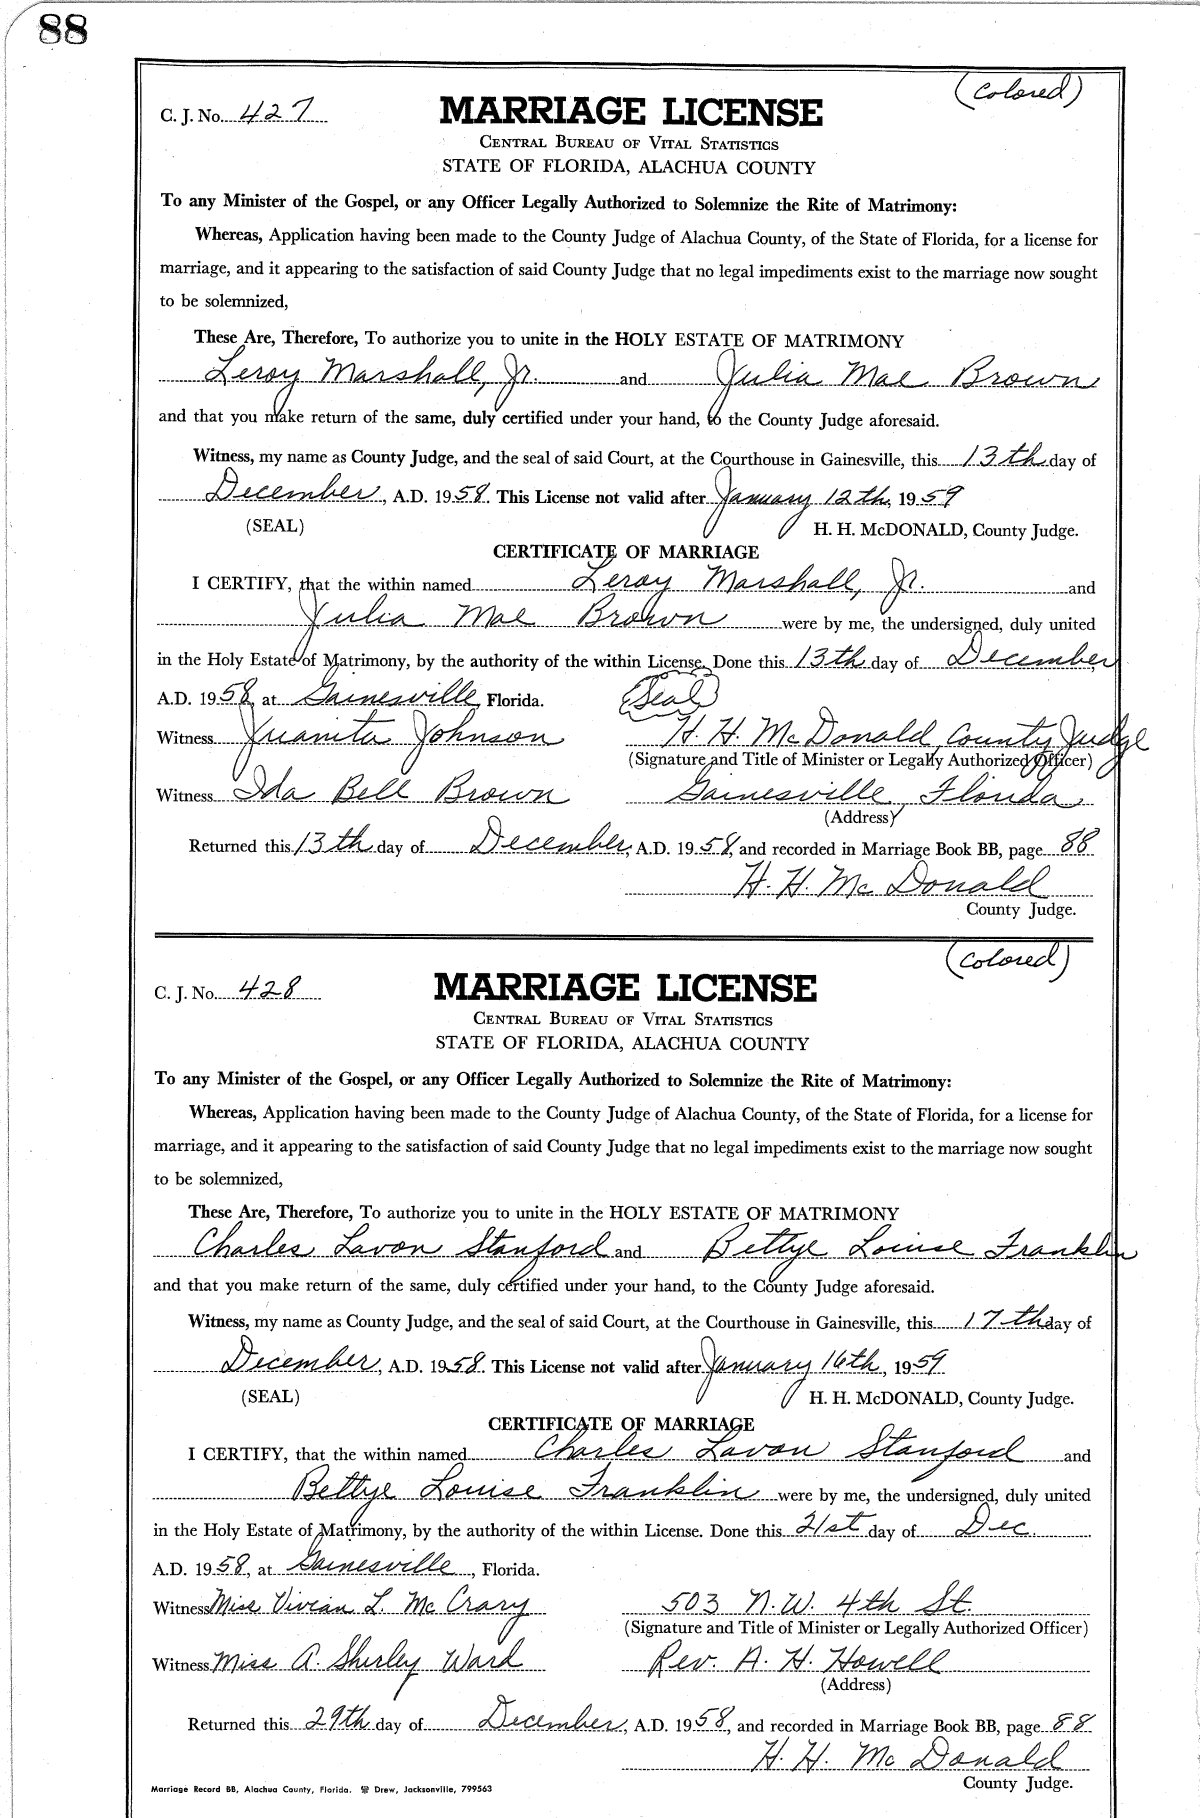 88
(colored)
C. J. No. 427
MARRIAGE LICENSE
CENTRAL BUREAU OF VITAL STATISTICS
STATE OF FLORIDA, ALACHUA COUNTY
To any Minister of the Gospel, or any Officer Legally Authorized to Solemnize the Rite of Matrimony:
Whereas, Application having been made to the County Judge of Alachua County, of the State of Florida, for a license for
marriage, and it appearing to the satisfaction of said County Judge that no legal impediments exist to the marriage now sought
to be solemnized,
These Are, Therefore, To authorize you to unite in the HOLY ESTATE OF MATRIMONY
Leroy Marshall, Jr. and Julia Mae Brown
and that you make return of the same, duly certified under your hand, to the County Judge aforesaid.
Witness, my name as County Judge, and the seal of said Court, at the Courthouse in Gainesville, this 13th day of
December, A.D. 1958. This License not valid after January 12th, 1959
(SEAL) H. H. McDONALD, County Judge.
CERTIFICATE OF MARRIAGE
I CERTIFY, that the within named Leroy Marshall, Jr. and
Julia Mae Brown were by me, the undersigned, duly united
in the Holy Estate of Matrimony, by the authority of the within License. Done this 13th day of December,
A.D. 1958, at Gainesville, Florida. (Seal)
Witness Juanita Johnson H. H. McDonald, County Judge
(Signature and Title of Minister or Legally Authorized Officer)
Witness Ida Bell Brown Gainesville, Florida
(Address)
Returned this 13th day of December, A.D. 1958, and recorded in Marriage Book BB, page 88
H. H. McDonald
County Judge.
(colored)
C. J. No. 428
MARRIAGE LICENSE
CENTRAL BUREAU OF VITAL STATISTICS
STATE OF FLORIDA, ALACHUA COUNTY
To any Minister of the Gospel, or any Officer Legally Authorized to Solemnize the Rite of Matrimony:
Whereas, Application having been made to the County Judge of Alachua County, of the State of Florida, for a license for
marriage, and it appearing to the satisfaction of said County Judge that no legal impediments exist to the marriage now sought
to be solemnized,
These Are, Therefore, To authorize you to unite in the HOLY ESTATE OF MATRIMONY
Charles Lavon Stanford and Bettye Louise Franklin
and that you make return of the same, duly certified under your hand, to the County Judge aforesaid.
Witness, my name as County Judge, and the seal of said Court, at the Courthouse in Gainesville, this 17th day of
December, A.D. 1958. This License not valid after January 16th, 1959
(SEAL) H. H. McDONALD, County Judge.
CERTIFICATE OF MARRIAGE
I CERTIFY, that the within named Charles Lavon Stanford and
Bettye Louise Franklin were by me, the undersigned, duly united
in the Holy Estate of Matrimony, by the authority of the within License. Done this 21st day of Dec.
A.D. 1958, at Gainesville, Florida.
Witness Miss Vivian L. McCrary 503 N.W. 4th St.
(Signature and Title of Minister or Legally Authorized Officer)
Witness Miss A. Shirley Ward Rev. A. H. Howell
(Address)
Returned this 29th day of December, A.D. 1958, and recorded in Marriage Book BB, page 88
H. H. McDonald
County Judge.
Marriage Record BB, Alachua County, Florida. Drew, Jacksonville, 799563